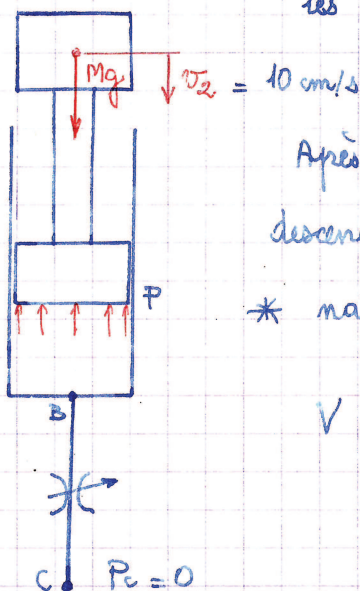 les
Mg
v₂ = 10 cm/s
Après
descen
P
* na
B
V
C Pc = 0